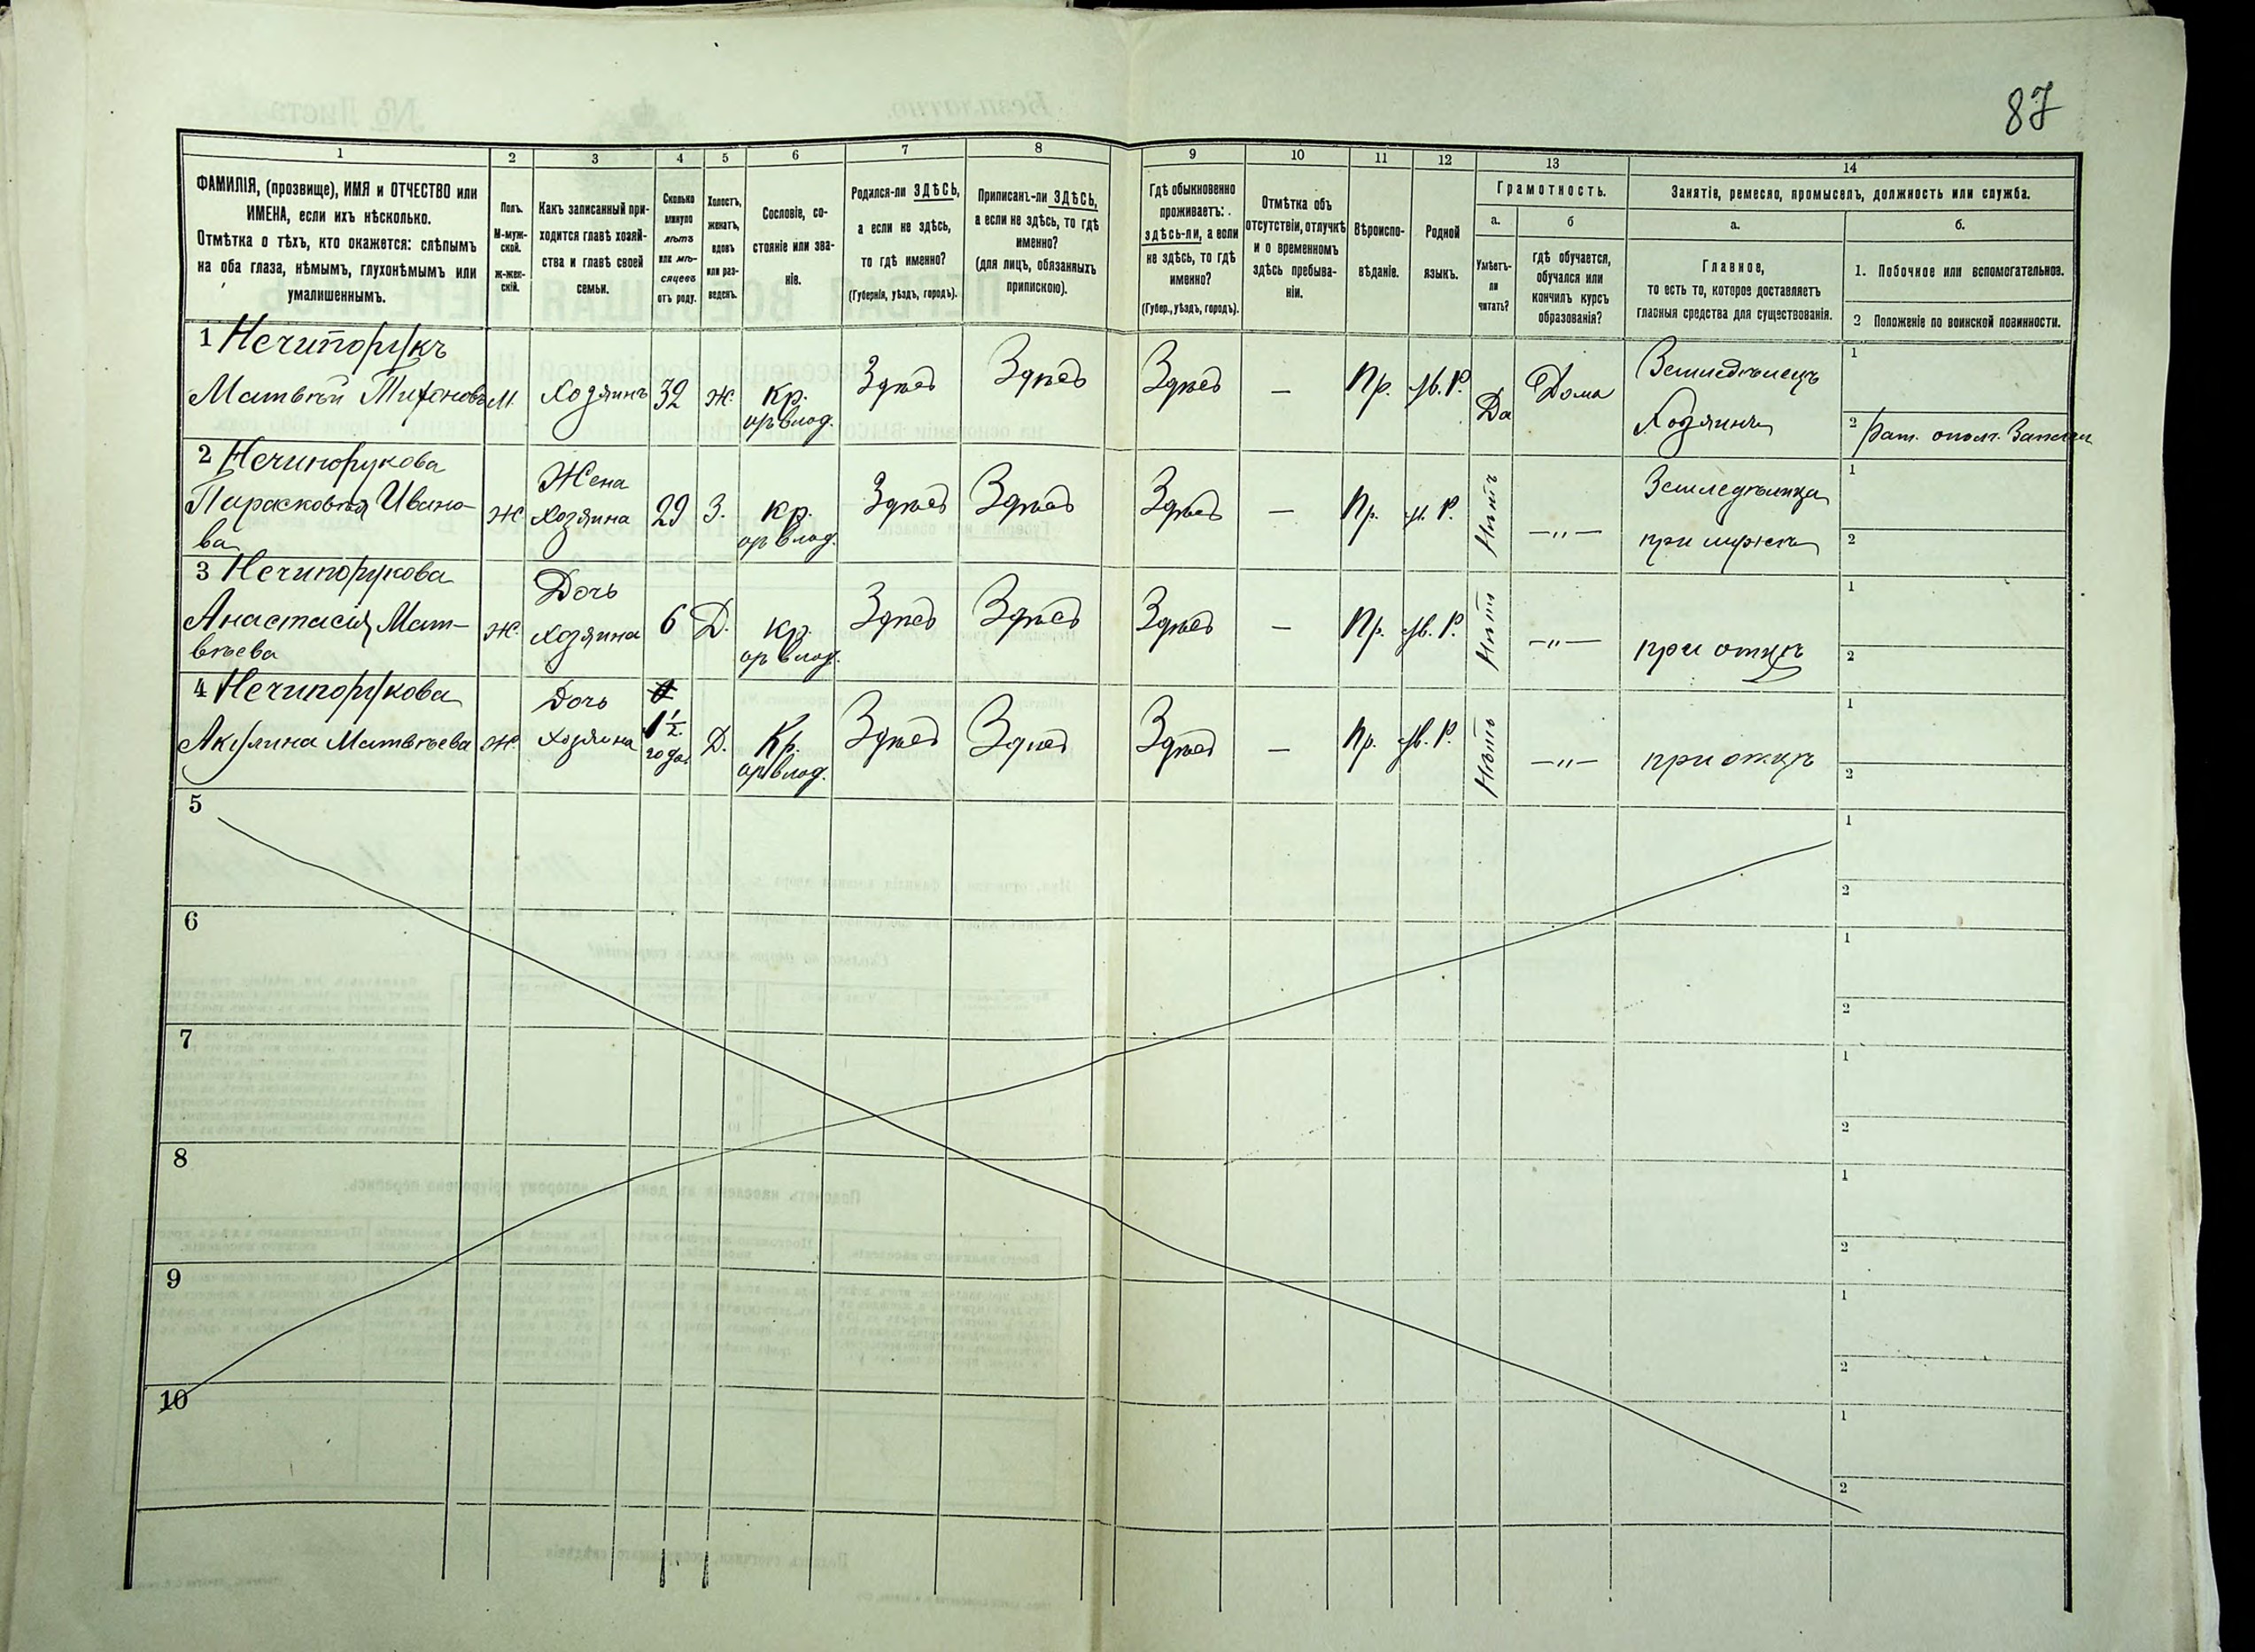 87
1
2
3
4
5
6
7
8
9
10
11
12
13
14
ФАМИЛІЯ, (прозвище), ИМЯ и ОТЧЕСТВО или
ИМЕНА, если ихъ нѣсколько.
Отмѣтка о тѣхъ, кто окажется: слѣпымъ
на оба глаза, нѣмымъ, глухонѣмымъ или
умалишеннымъ.
Полъ.
М-муж-
ской.
ж-жен-
скій.
Какъ записанный при-
ходится главѣ хозяй-
ства и главѣ своей
семьи.
Сколько
минуло
лѣтъ
или мѣ-
сяцевъ
отъ роду.
Холостъ,
женатъ,
вдовъ
или раз-
веденъ.
Сословіе, со-
стояніе или зва-
ніе.
Родился-ли ЗДѢСЬ,
а если не здѣсь,
то гдѣ именно?
(Губернія, уѣздъ, городъ).
Приписанъ-ли ЗДѢСЬ,
а если не здѣсь, то гдѣ
именно?
(для лицъ, обязанныхъ
припискою).
Гдѣ обыкновенно
проживаетъ:
здѣсь-ли, а если
не здѣсь, то гдѣ
именно?
(Губер., уѣздъ, городъ).
Отмѣтка объ
отсутствіи, отлучкѣ
и о временномъ
здѣсь пребыва-
ніи.
Вѣроиспо-
вѣданіе.
Родной
языкъ.
Грамотность.
а.
Умѣетъ-
ли
читать?
б
гдѣ обучается,
обучался или
кончилъ курсъ
образованія?
Занятія, ремесло, промыселъ, должность или служба.
а.
Главное,
то есть то, которое доставляетъ
главныя средства для существованія.
б.
1. Побочное или вспомогательное.
2 Положеніе по воинской повинности.
1 Нечипорукъ
Матвѣй Тихоновъ
М.
Хозяинъ
32
Ж.
Кр.
Здѣсь
Здѣсь
Здѣсь
—
Пр.
М. Р.
Да
Дома
Земледѣлецъ
Хозяинъ
1
2 Рат. ополч.
2 Нечипорукова
Парасковья Ивано-
ва
Ж
Жена
хозяина
29
З.
Кр.
Здѣсь
Здѣсь
Здѣсь
—
Пр.
М. Р.
Нѣтъ
—„—
Земледѣлица
при мужѣ
1
2
3 Нечипорукова
Анастасія Мат-
вѣева
Ж.
Дочь
хозяина
6
Д.
Кр.
Здѣсь
Здѣсь
Здѣсь
—
Пр.
М. Р.
Нѣтъ
—„—
при отцѣ
1
2
4 Нечипорукова
Акулина Матвѣева
Ж.
Дочь
хозяина
1½
года
Д.
Кр.
Здѣсь
Здѣсь
Здѣсь
—
Пр.
М. Р.
Нѣтъ
—„—
при отцѣ
1
2
5
1
2
6
1
2
7
1
2
8
1
2
9
1
2
10
1
2